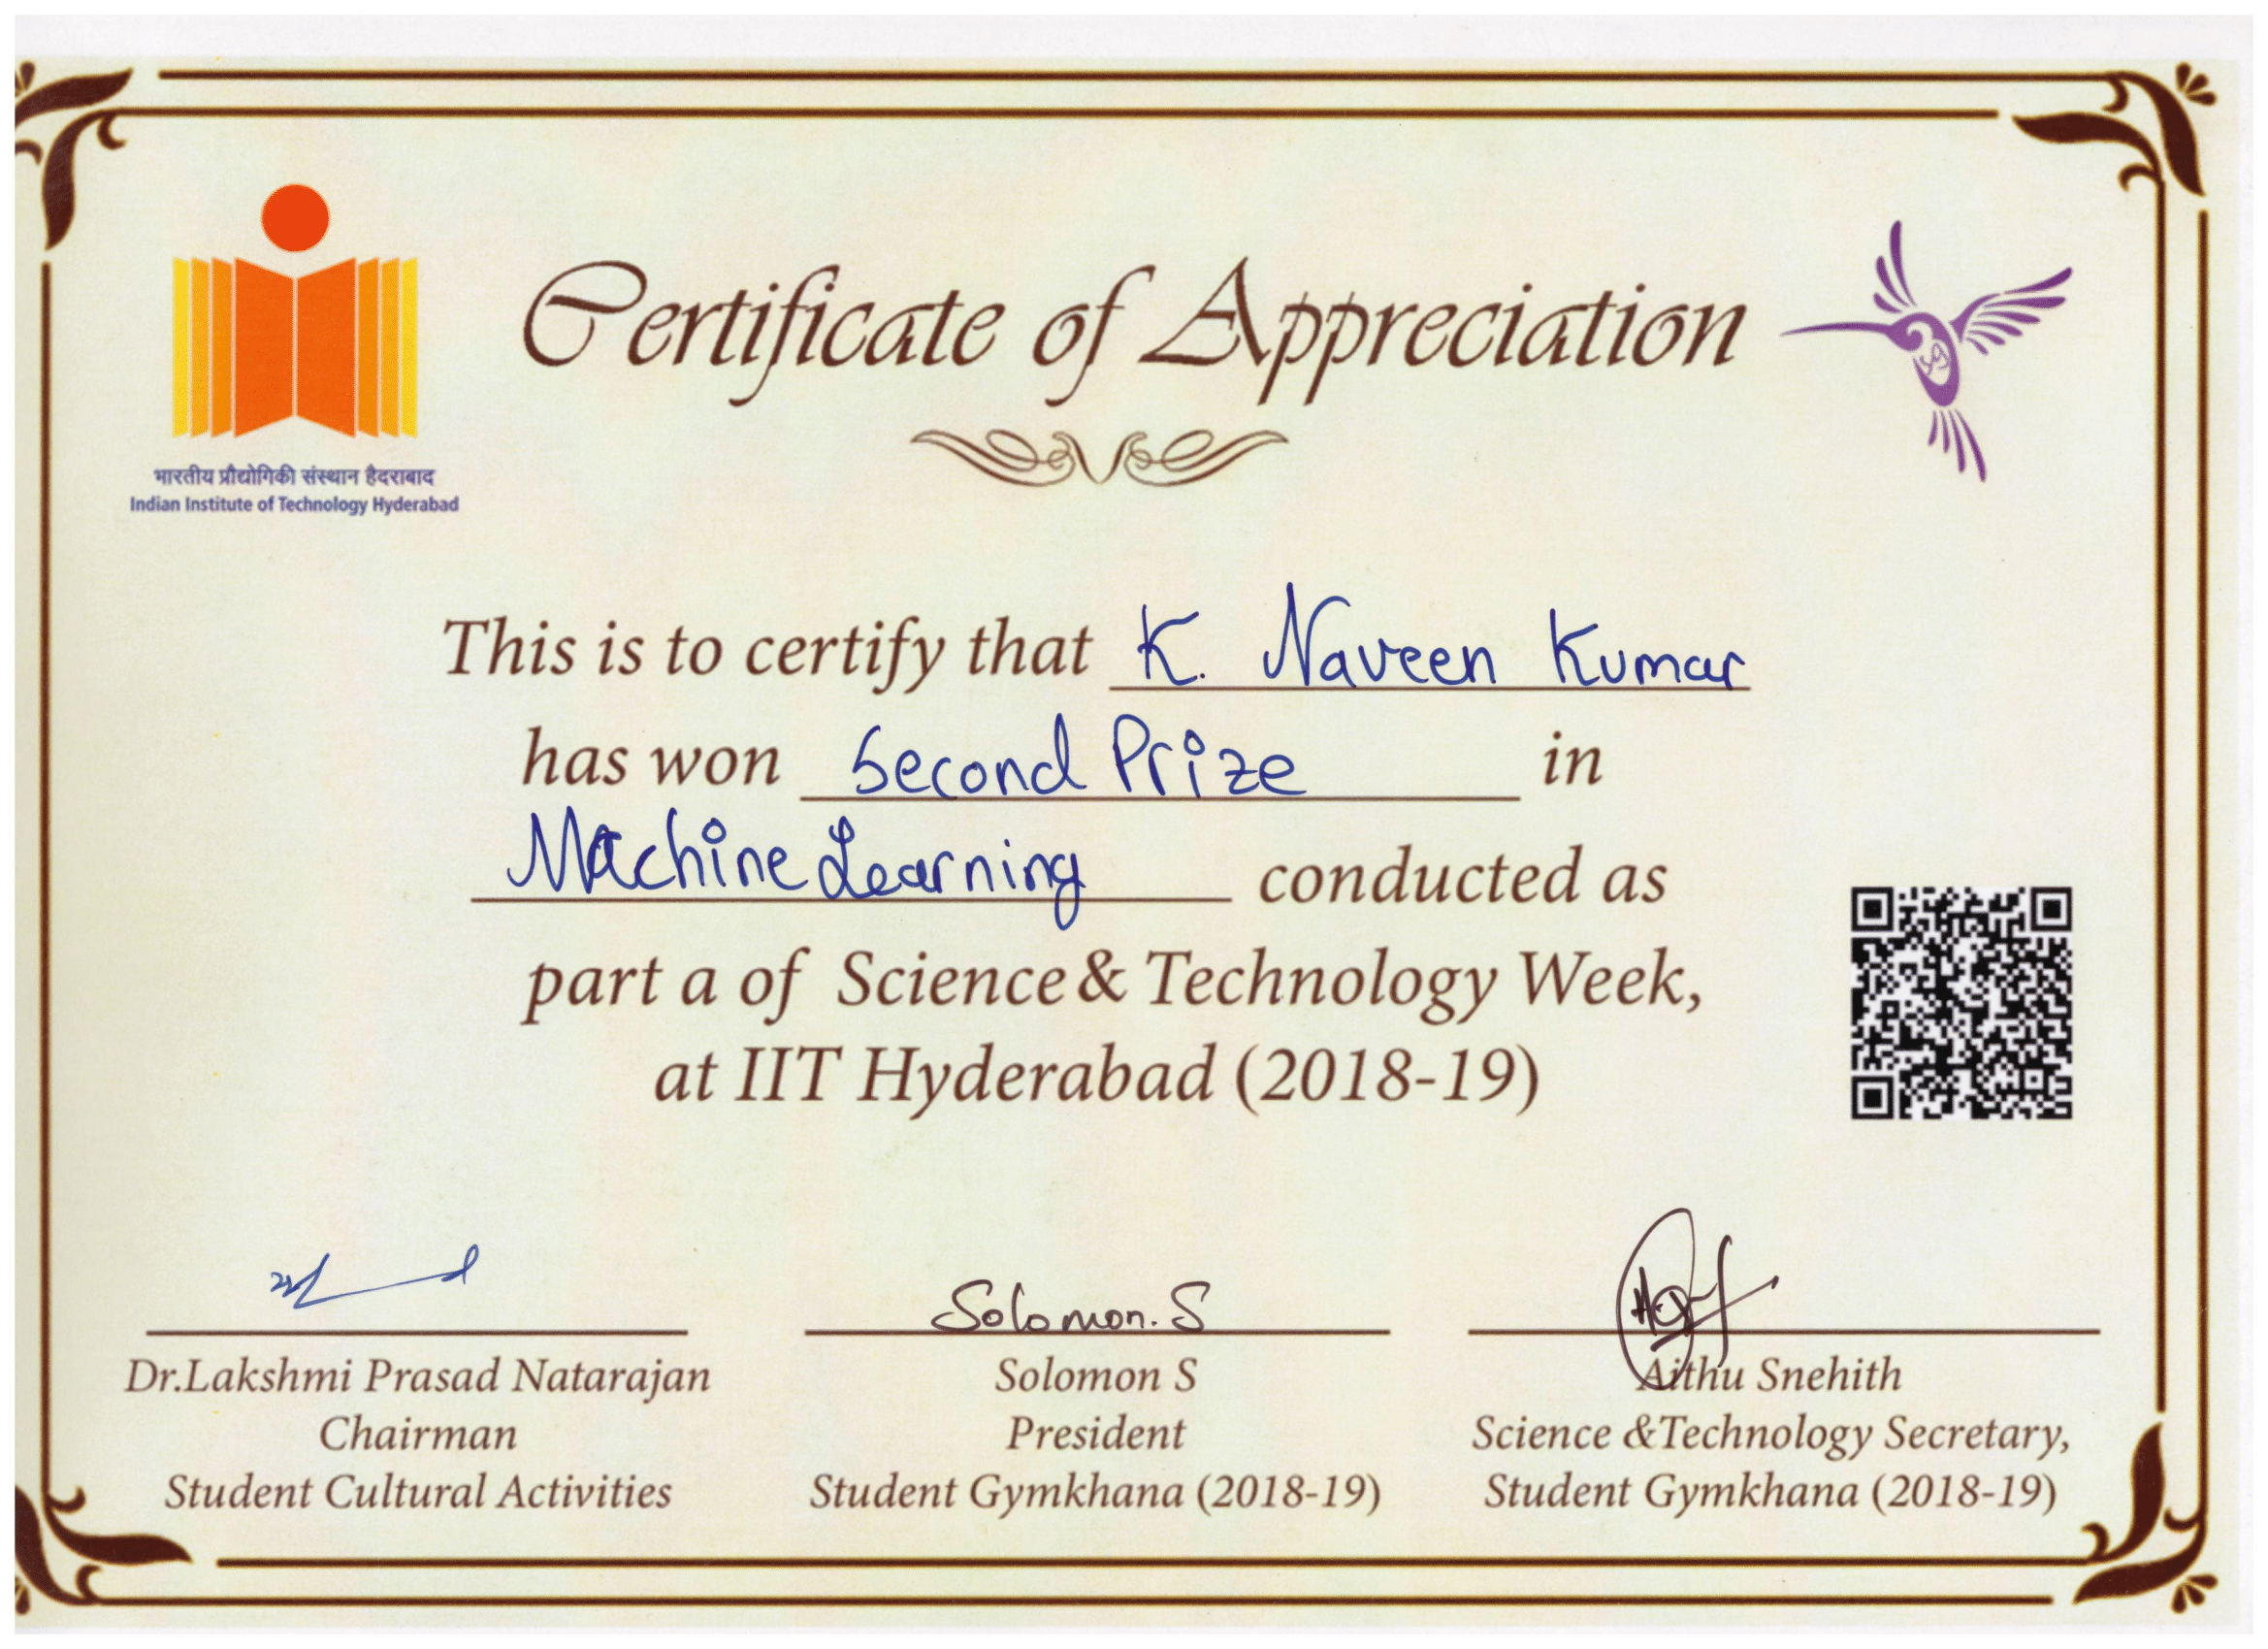 Certificate of Appreciation
भारतीय प्रौद्योगिकी संस्थान हैदराबाद
Indian Institute of Technology Hyderabad
sg
This is to certify that K. Naveen Kumar
has won Second Prize in
Machine Learning conducted as
part a of Science & Technology Week,
at IIT Hyderabad (2018-19)
Solomon. S
Dr.Lakshmi Prasad Natarajan
Chairman
Student Cultural Activities
Solomon S
President
Student Gymkhana (2018-19)
Aithu Snehith
Science &Technology Secretary,
Student Gymkhana (2018-19)